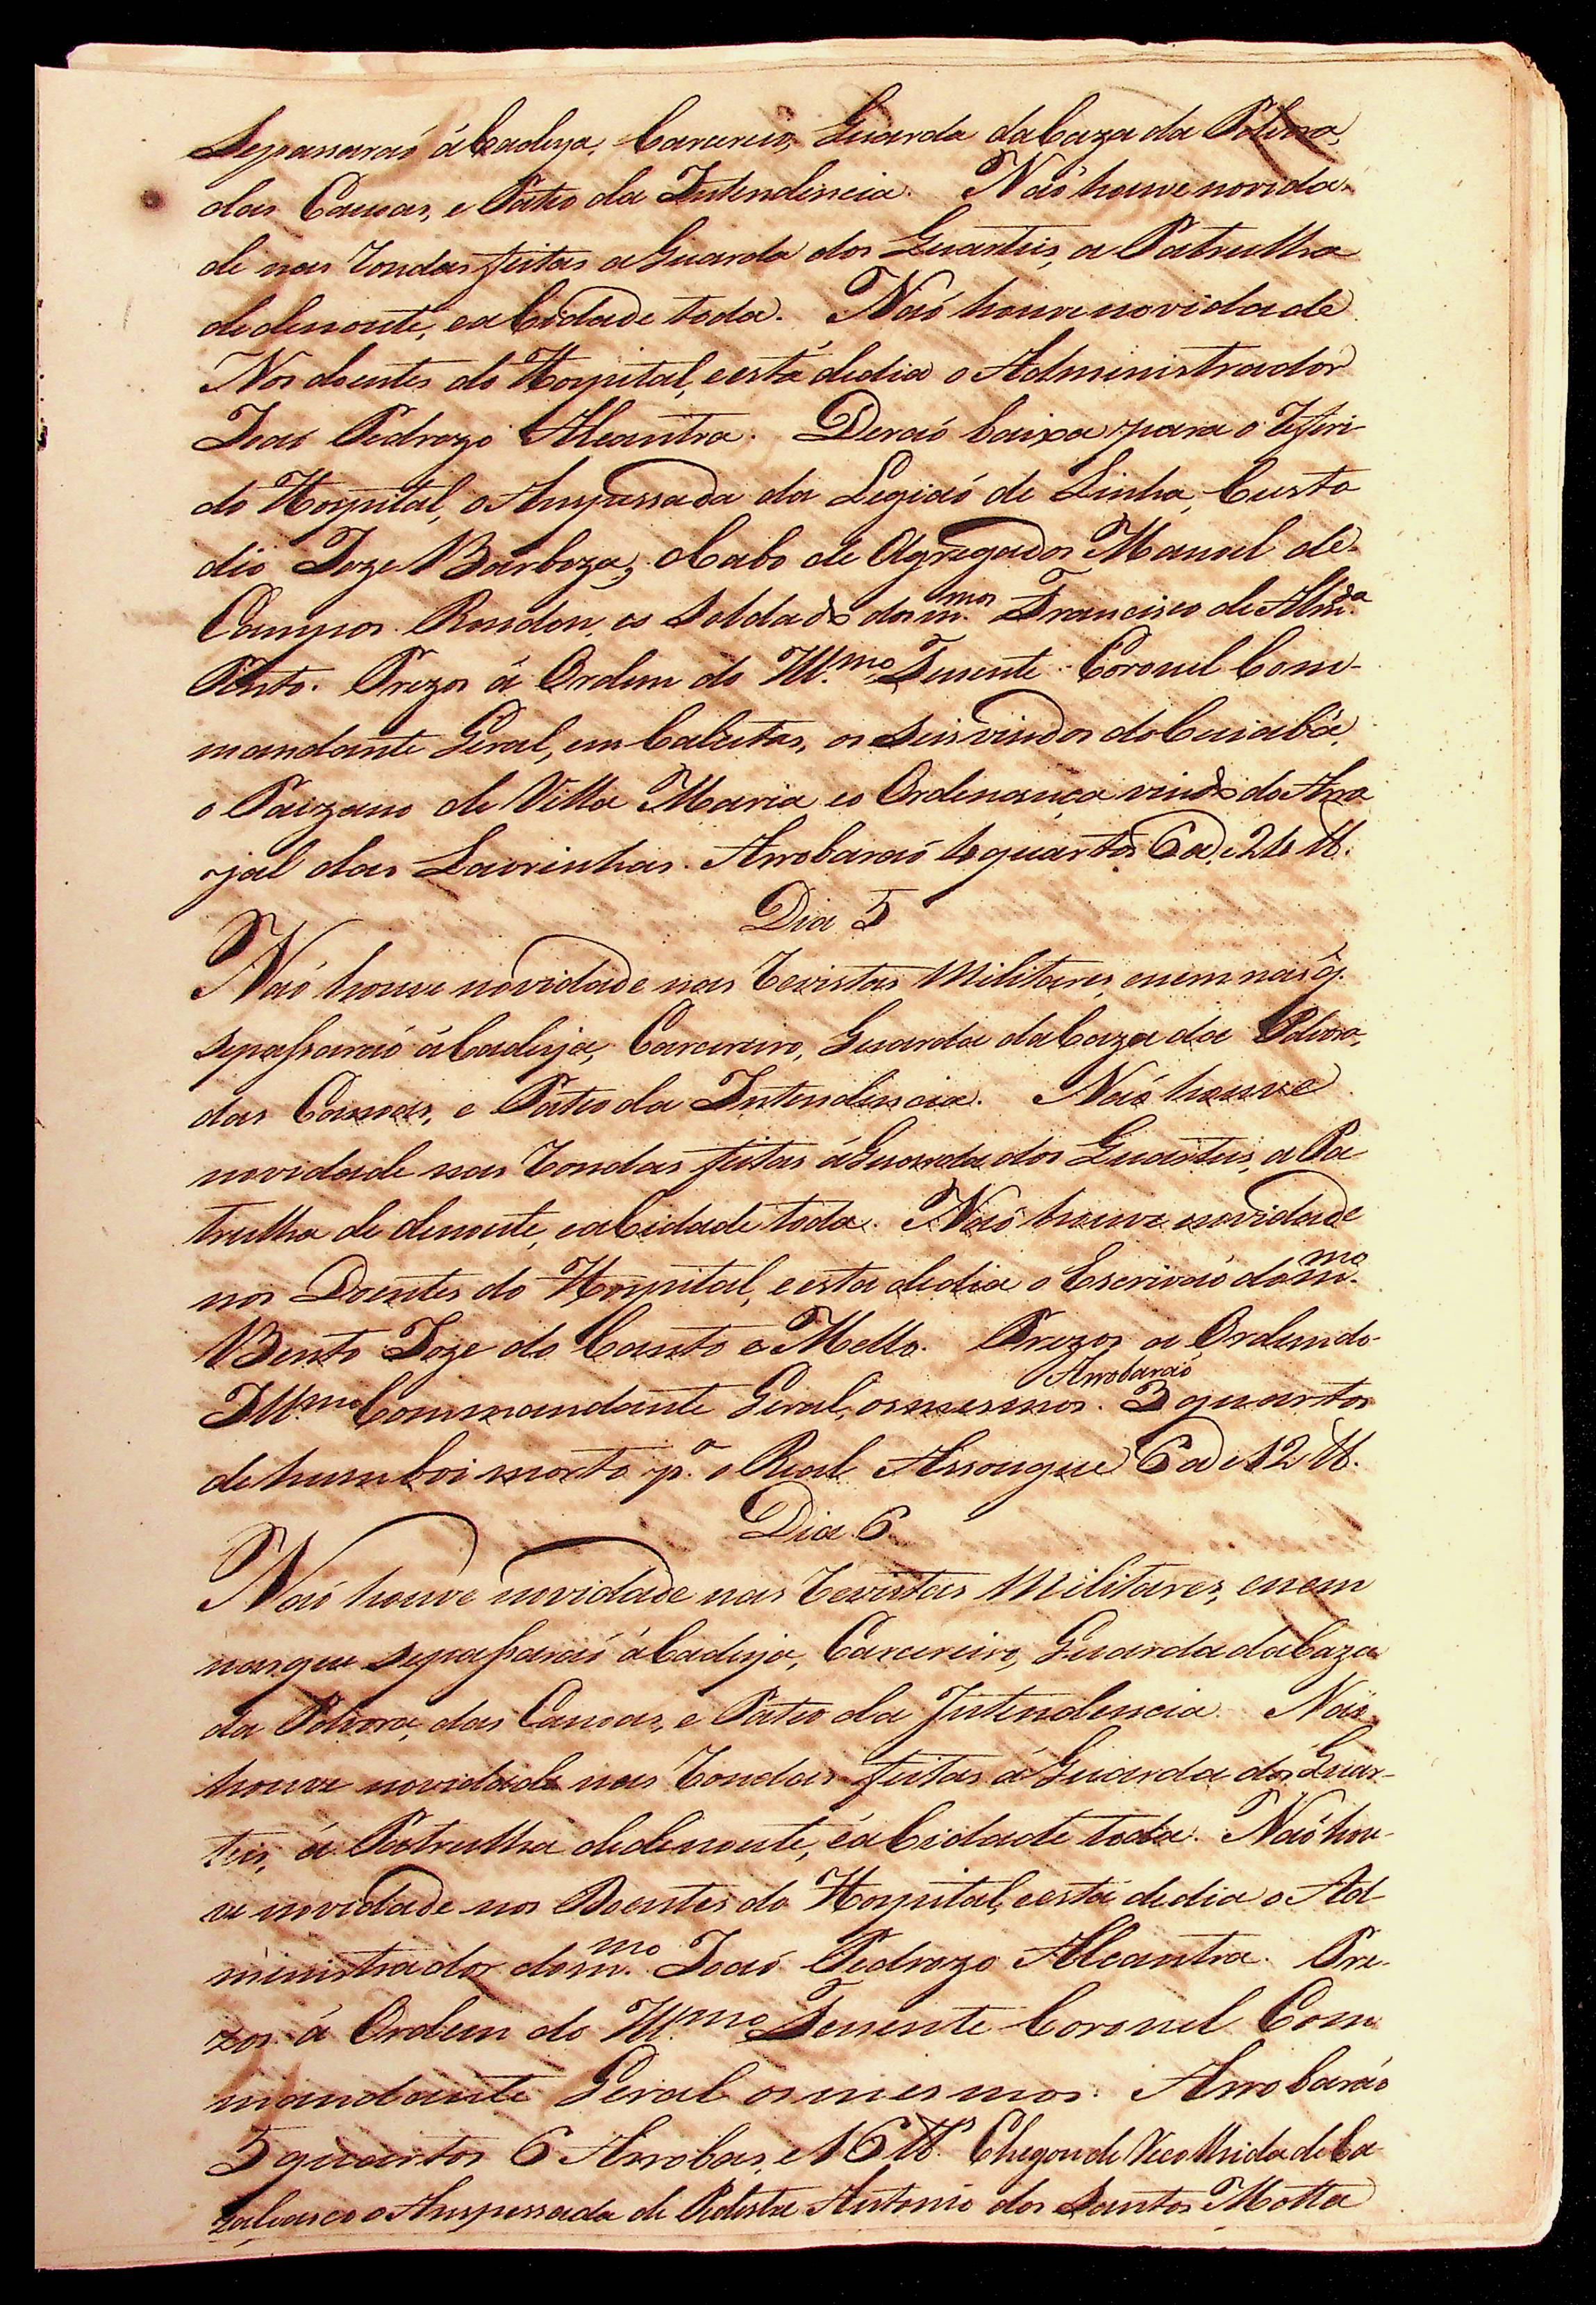 Sepassaraó áCadeya, Carcereiro, Guarda daCaza da Polvora,
das Canoas, e Pateo da Intendencia. Naó houve novida-
de nas Rondas feitas a Guarda dos Quarteis, a Patrulha
dedenoute, eaCidade toda. Naó houve novidade
Nos doentes do Hospital, eestá dedia o Administrador
Joaó Pedrozo Alcantra. Deraó baixa para o Referi-
do Hospital, o Anspessada da Legiaó de Linha, Custo
dio Joze Barboza, oCabo de Agregados Manoel de
Campos Rondon, eo Soldado dosm.mos Francisco de Almd.a
Pinto. Prezos á Ordem do Ill.mo Tenente Coronel Com-
mandante Geral, em Calcetas, os Seis vindos doCuiabá,
o Paizano de Villa Maria eo Ordenança vindo do Arra
jal das Lavrinhas. Arrobaraó 4 quartos 6 @ e 24 lb.
Dia 5
Naó houve novidade nas Revistas Militares, enem nas q.
sepassaraó áCadeya, Carcereiro, Guarda daCaza da Polvora,
das Canoas, e Pateo da Intendencia. Naó houve
novidade nas Rondas feitas áGuarda dos Quarteis, a Pa
trulha de denoute, eaCidade toda. Naó houve novidade
nos Doentes do Hospital, e esta dedia o Escrivaó dom.mo
Bento Joze do Canto e Mello. Prezos a Ordem do
Ill.mo Commandante Geral, osmesmos. Arrobaraó 3 quartos
de hum boi morto p.a o Real Assougue 6 @ e 12 lb.
Dia 6
Naó houve novidade nas Revistas Militares, enem
nasque sepassaraó áCadeya, Carcereiro, Guarda daCaza
da Polvora, das Canoas, e Pateo da Intendencia. Naó
houve novidade nas Rondas feitas á Guarda dos Quar-
teis, á Patrulha dedenoute, éaCidade toda. Naó hou-
ve novidade nos Doentes do Hospital, eestá dedia o Ad-
ministrador dom.mo Joaó Pedrozo Alcantra. Pre-
zos á Ordem do Ill.mo Tenente Coronel Com
mandante Geral osmesmos. Arrobaráo
5 quartos 6 Arrobas, e 16 lb. Chegou de Recolhida de Ca
zalvasco o Anspessada de Pedestre Antonio dos Santos Motta